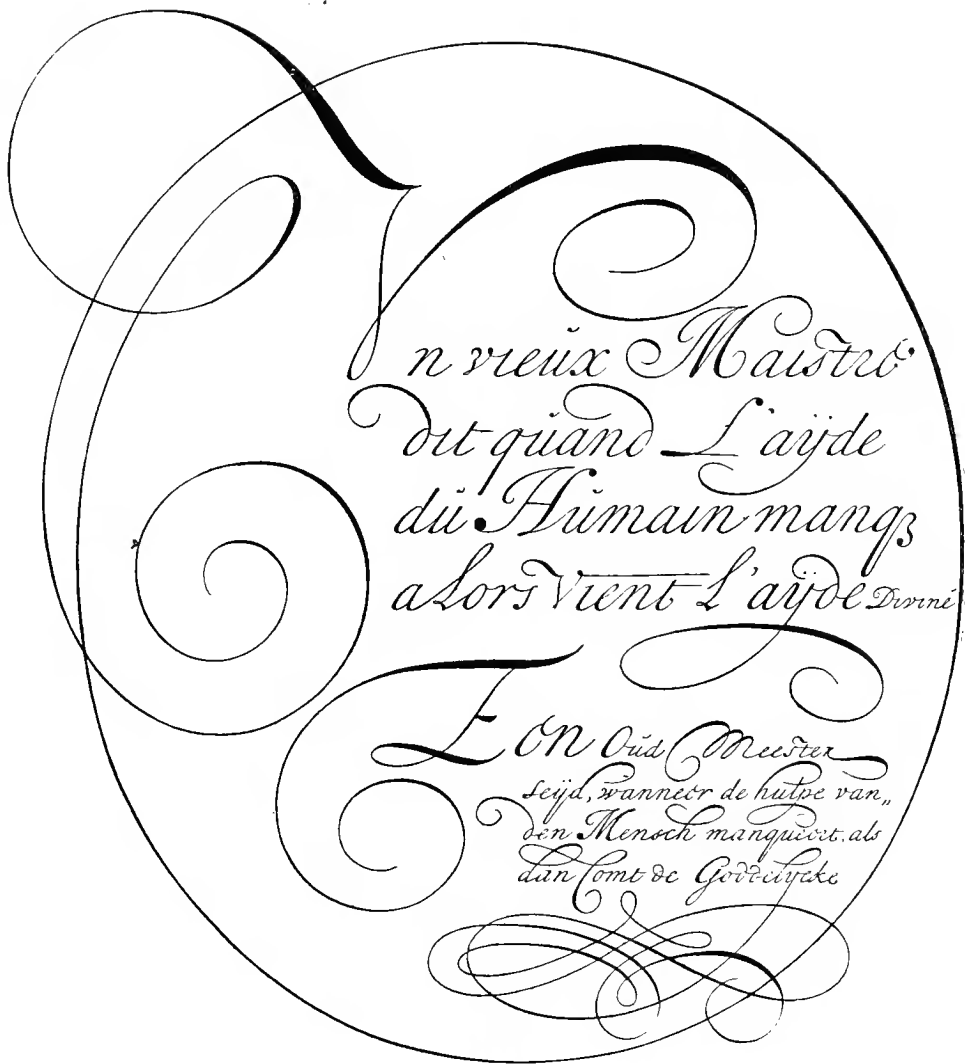 Un vieŭx Maistre
dit qŭand L'aÿde
dŭ Hŭmain manqꝫ
alors Vient L'aÿde Diviné
Een Oŭd Meester
seijd, wanneer de hulpe van„
den Mensch manqueert, als
dan Comt de Goddelycke